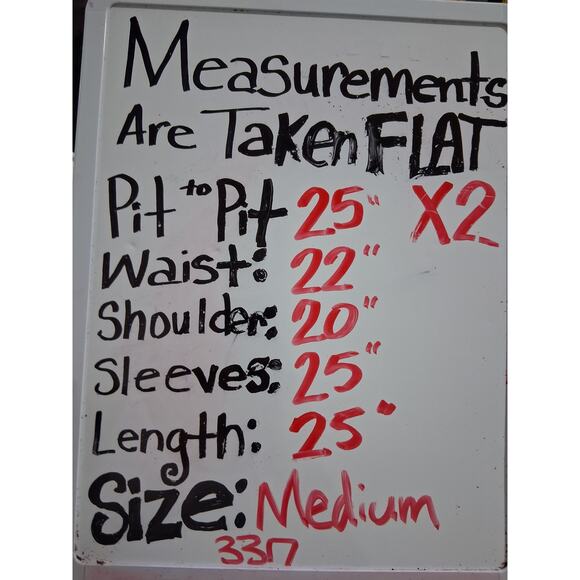 Measurements
Are Taken FLAT
Pit to Pit 25" X2
Waist: 22"
Shoulder: 20"
Sleeves: 25"
Length: 25"
Size: Medium